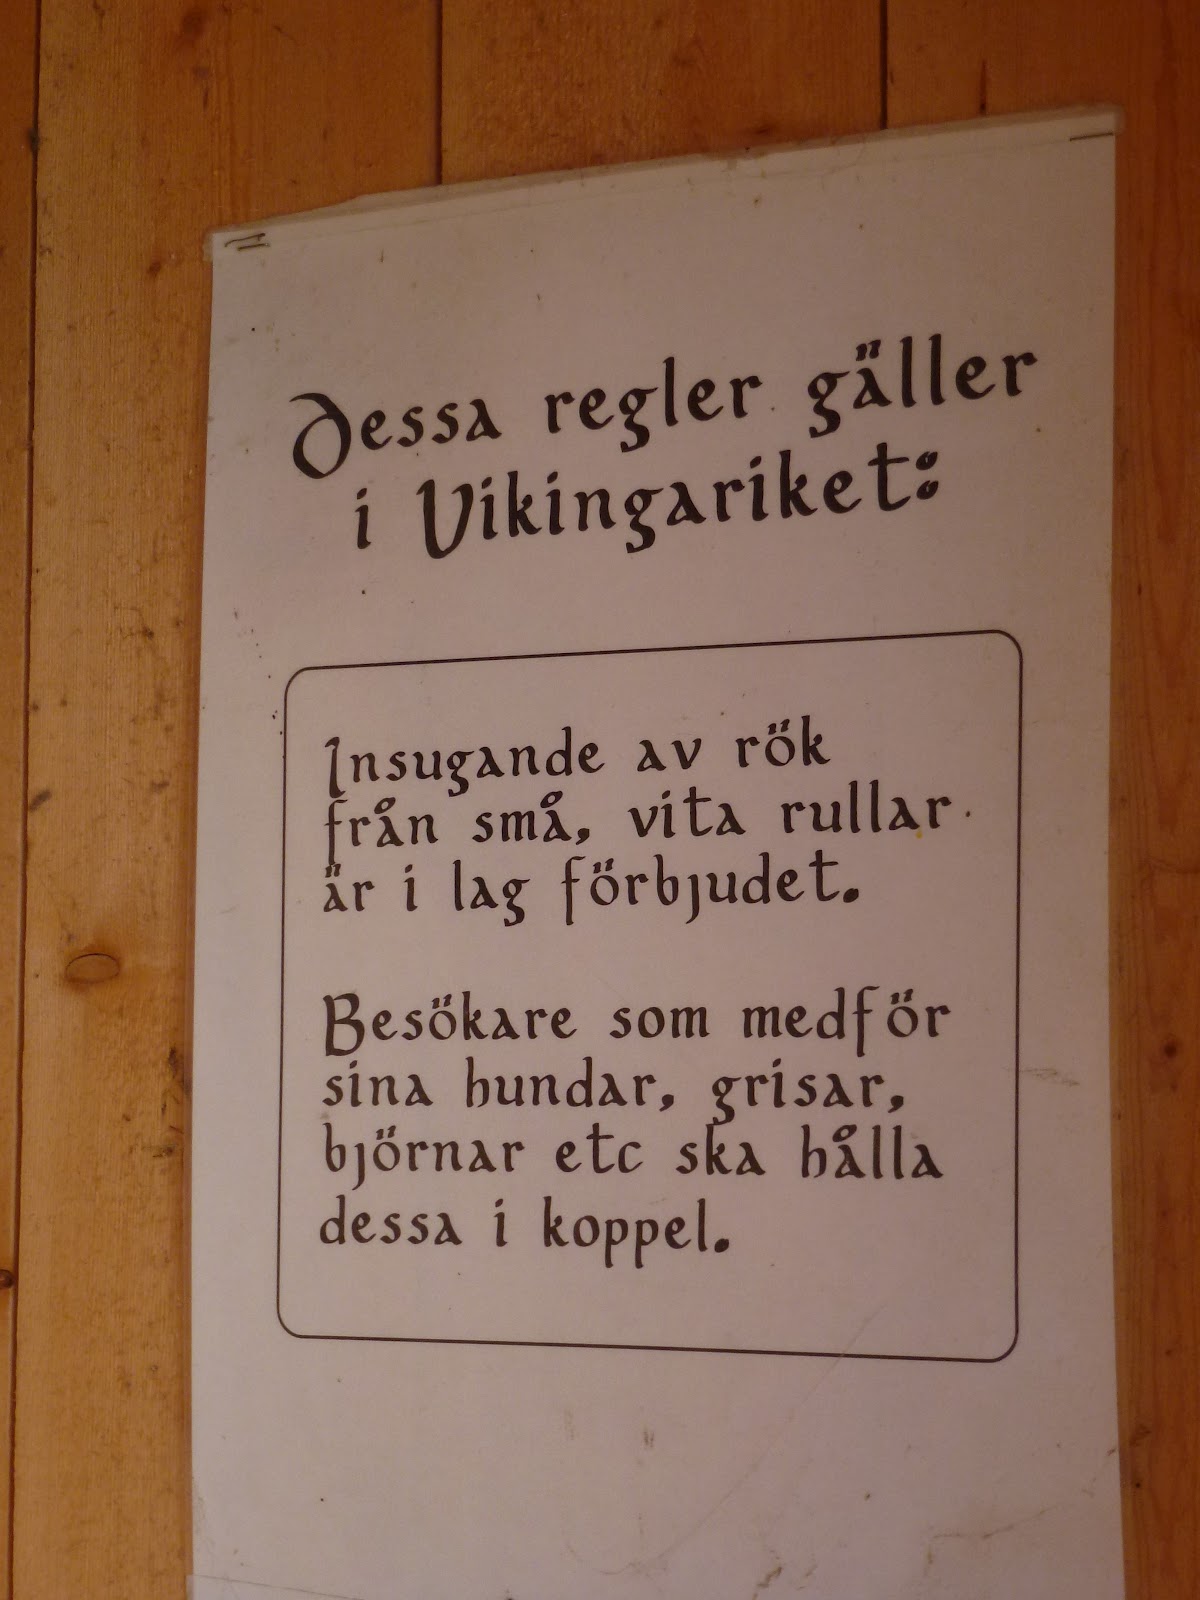 Dessa regler gäller
i Vikingariket:
Insugande av rök
från små, vita rullar
är i lag förbjudet.
Besökare som medför
sina hundar, grisar,
björnar etc ska hålla
dessa i koppel.